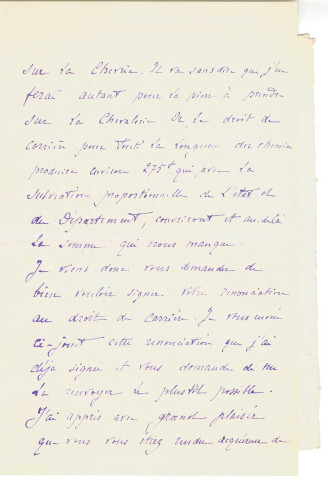 sur la Chevrie. Il va sans dire que j'en
ferai autant pour la pierre à prendre
sur la Chevalerie. Or le droit de
carrière pour toute la longueur du chemin
produira environ 275f qui avec la
subvention proportionnelle de l'état et
du Département, couvriront et au delà
la somme qui nous manque.
Je viens donc vous demander de
bien vouloir signer votre renonciation
au droit de carrière. Je vous envoie
ci-joint cette renonciation que j'ai
déjà signée et vous demande de me
la renvoyer le plustôt possible.
J'ai appris avec grand plaisir
que vous vous étiez rendu acquéreur de